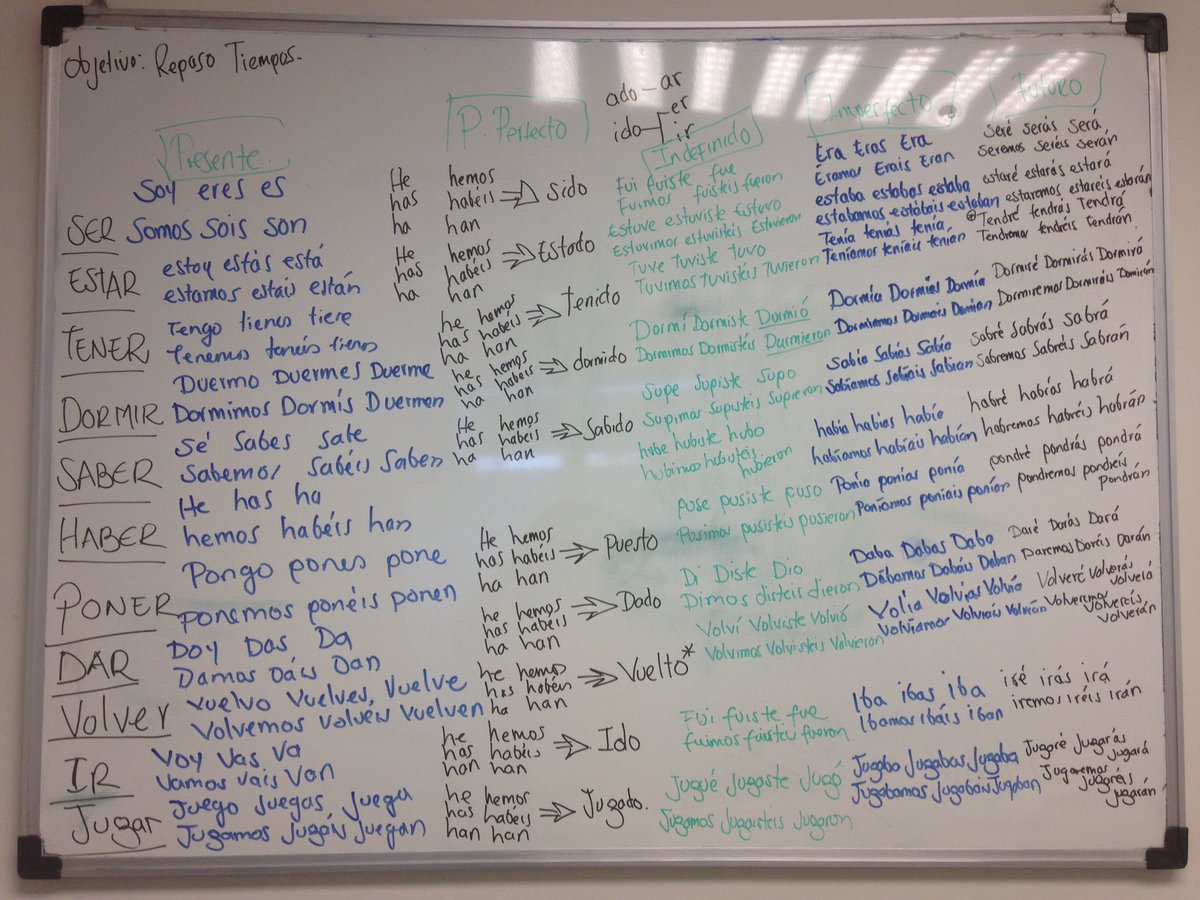 Objetivo: Repaso Tiempos.
Presente
P. Perfecto
ado - ar
ido - er
ir
Indefinido
Imperfecto
Futuro
SER
Soy eres es
Somos Sois son
He hemos
has habéis
ha han
Sido
Fui fuiste fue
Fuimos fuisteis fueron
Era Eras Era
Éramos Erais Eran
Seré serás Será
Seremos Seréis Serán
ESTAR
estoy estás está
estamos estais están
He hemos
has habéis
ha han
Estado
Estuve estuviste Estuvo
Estuvimos estuvistéis Estuvieron
estaba estabas estaba
estabamos estábais estaban
estaré estarás estará
estaremos estareis estarán
TENER
Tengo tienes tiene
Tenemos teneis
he hemos
has habéis
ha han
Tenido
Tuve Tuviste Tuvo
Tuvimos Tuvistéis Tuvieron
Tenía tenías tenía
Teníamos teníais tenían
Tendré tendrás Tendrá
Tendremos tendréis Tendrán
DORMIR
Duermo Duermes Duerme
Dormimos Dormís Duermen
he hemos
has habéis
ha han
dormido
Dormí Dormiste Dormió
Dormimos Dormistéis Darmieron
Dormía Dormías Dormía
Dormiré Dormirás Dormirá
Dormiremos Dormiráis Dormirán
SABER
Sé Sabes sabe
Sabemos Sabéis Saben
He hemos
has habeis
ha han
Sabido
Supe Supiste Supo
Supimos Supisteis Supieron
Sabía Sabías Sabía
Sabíamos Sabíais Sabían
Sabré Sabrás Sabrá
Sabremos Sabréis Sabrán
HABER
He has ha
hemos habéis han
hube hubiste hubo
hubimos hubisteis
hubieron
había habías había
habíamos habíais habían
habré habrás habrá
habremos habréis habrán
PONER
Pongo pones pone
ponemos ponéis ponen
He hemos
has habéis
ha han
Puesto
puse pusiste puso
Posimos pusisteis pusieron
Ponía ponías ponía
Poníamos poniais ponían
pondré pondrás pondrá
pondremos pondréis
Pondrán
DAR
Doy Das Da
Damos Dáis Dan
he hemos
has habéis
ha han
Dado
Di Diste Dio
Dimos disteis dieron
Daba Dabas Daba
Dábamos Dabáis Daban
Daré Darás Dará
Daremos Daráis Darán
Volver
Vuelvo Vuelves, Vuelve
Volvemos volvéis vuelven
he hemos
has habén
ha han
Vuelto*
Volví Volviste Volvió
Volvimos Volvisteis Volvieron
Volía Volvías Volvía
Volvíamos Volvíais Volvían
Volveré Volverás
Volverá
Volveremos Volveréis
Volverán
IR
Voy Vas Va
Vamos Vais Van
he hemos
has habéis
han han
Ido
Fui fuiste fue
fuimos fuisteis fueron
Iba ibas iba
Ibamos ibáis iban
iré irás irá
iremos iréis irán
Jugar
Juego Juegas, Juega
Jugamos Jugáis Juegan
he hemos
has habéis
han han
Jugado.
Jugué Jugaste Jugó
Jugamos Jugasteis Jugaron
Jugaba Jugabas Jugaba
Jugabamos Jugabais Jugaban
Jugaré Jugarás
Jugará
Jugaremos
Jugaréis
Jugarán